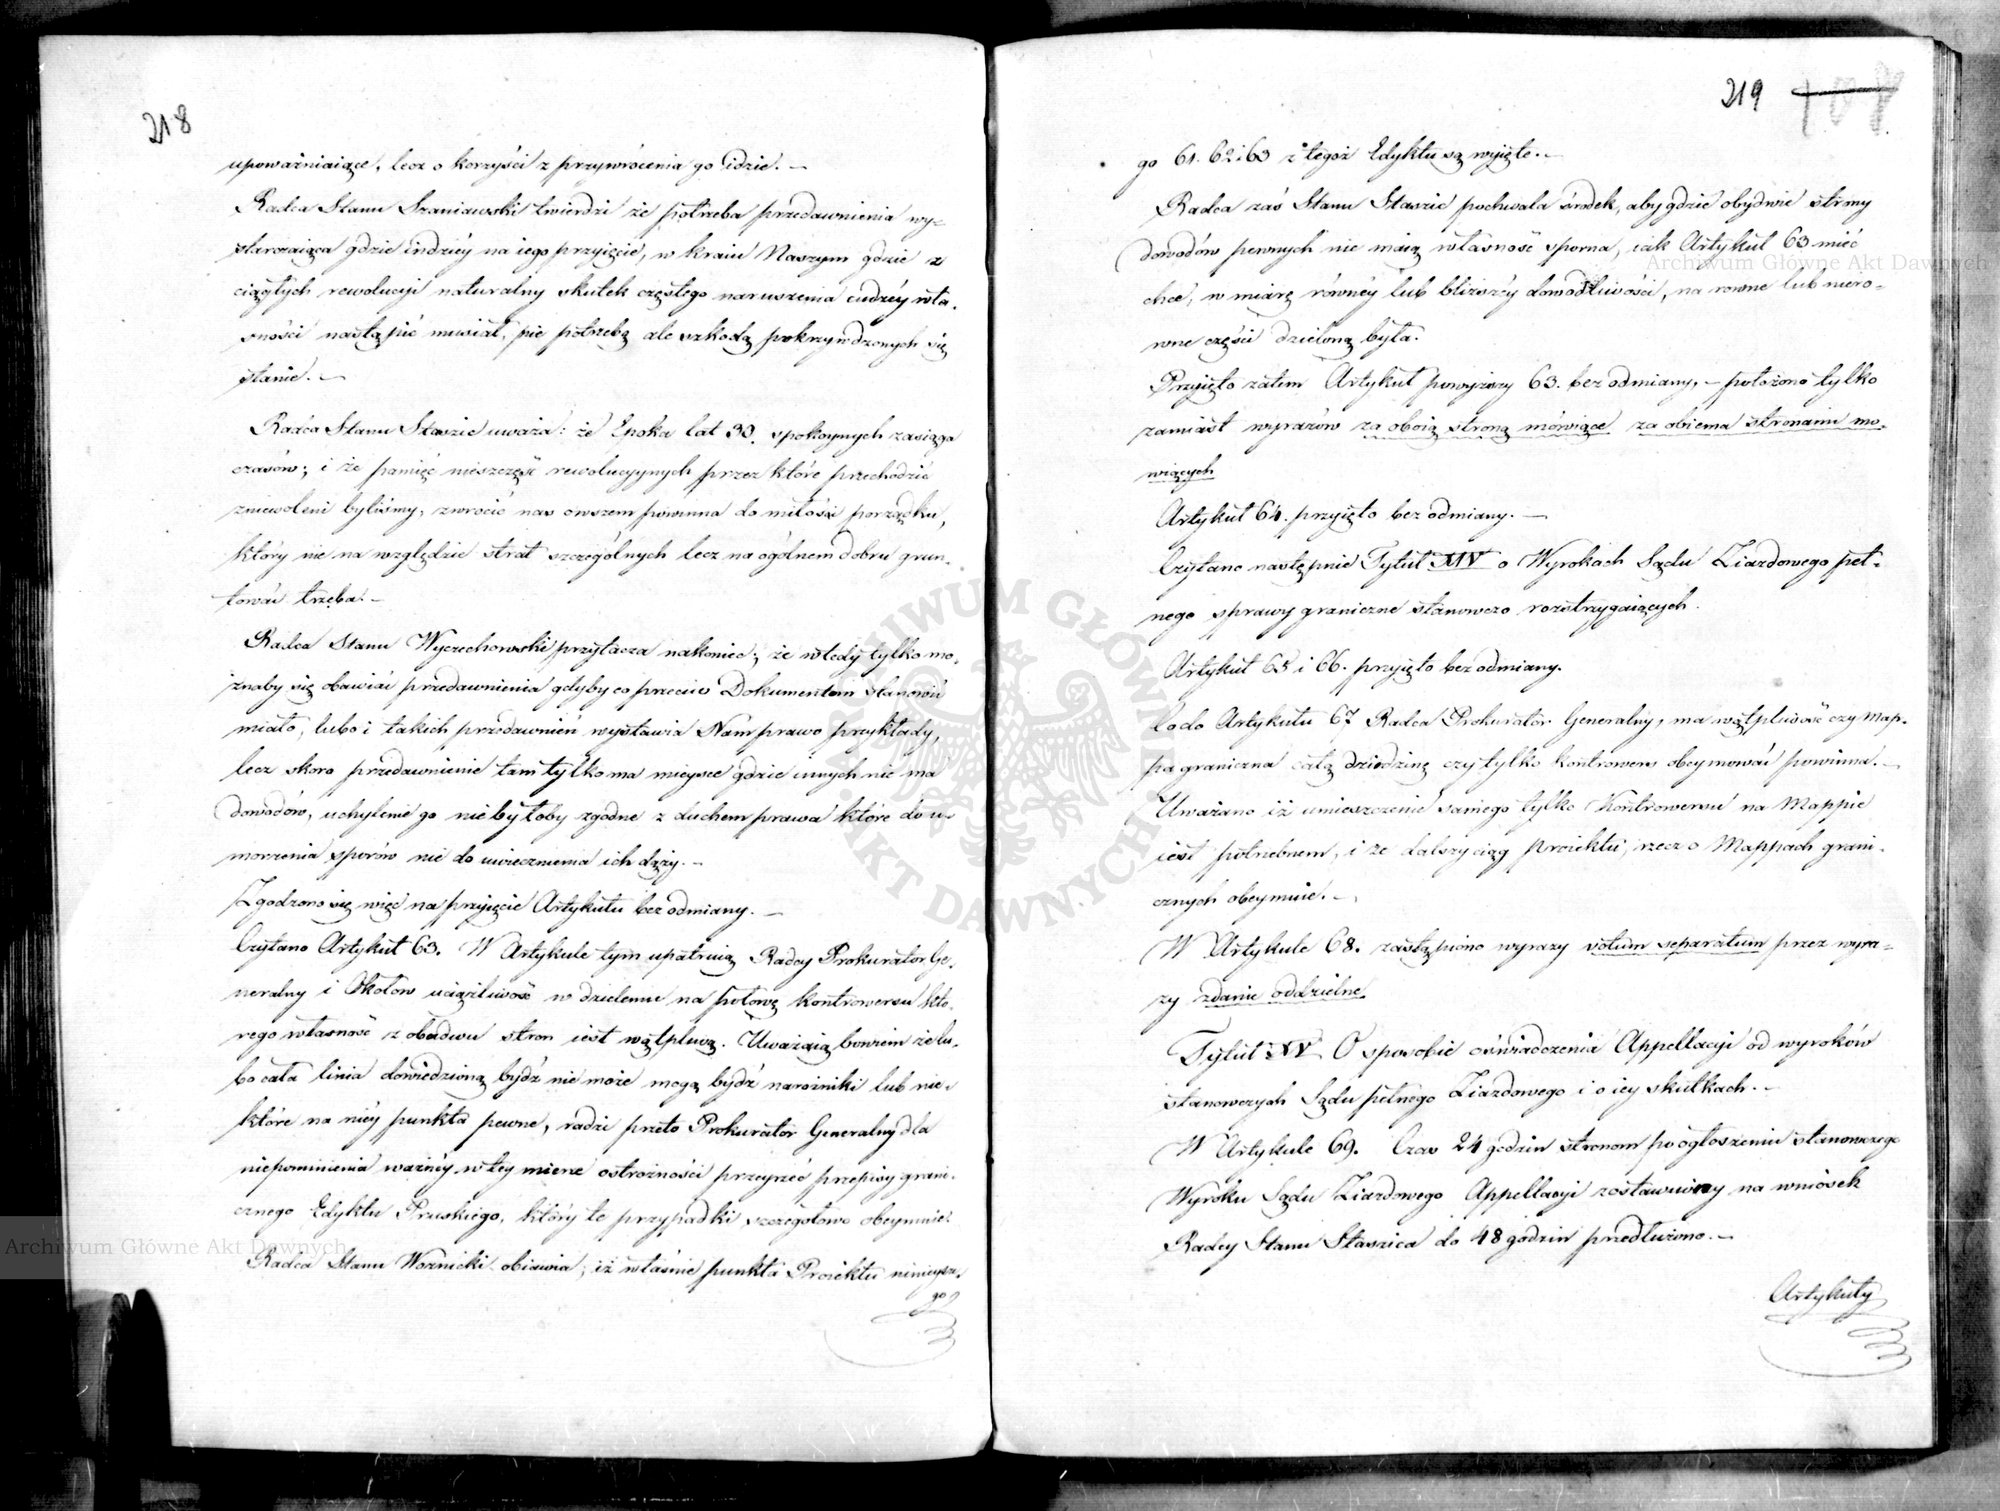 218
upoważniaiące, lecz o korzyści z przywrócenia go idzie. —
Radca Stanu Szaniawski twierdzi że potrzeba przedawnienia wy=
starczaiąca gdzie indziéy na iego przyięcie, w kraiu Naszym gdzie z
ciągłych rewolucyi naturalny skutek częstego naruszenia cudzéy wła=
sności nastąpić musiał, nie potrzebą ale szkodą pokrzywdzonych się
stanie. —
Radca Stanu Staszic uważa: że Epoka lat 30. spokoynych zasiąga
czasów; i że pamięć nieszczęść rewolucyynych przez które przechodzić
zniewoleni byliśmy, zwrócić nas owszem powinna do miłości porządku,
który nie na względzie strat szczególnych lecz na ogólnem dobru grun=
tować trzeba. —
Radca Stanu Wyczechowski przytacza nakoniec; że wtedy tylko mo=
żnaby się obawiać przedawnienia gdyby co przeciw Dokumentom stanowić
miało, lubo i takich przedawnień wystawia Nam prawo przykłady,
lecz skoro przedawnienie tam tylko ma mieysce gdzie innych nie ma
dowodów, uchylenie go nie byłoby zgodne z duchem prawa które do u=
morzenia sporów nie do uwiecznienia ich dąży. —
Zgodzono się więc na przyięcie Artykułu bez odmiany. —
Czytano Artykuł 63. W Artykule tym upatruią Radcy Prokurator Ge=
neralny i Okołow uciążliwość w dzieleniu na połowę kontrowersu któ=
rego własność z obudwu stron iest wątpliwą. Uważaią bowiem że lu=
bo cała linia dowiedzioną bydź nie może mogą bydź narożniki lub nie=
które na niéy punkta pewne, radzi przeto Prokurator Generalny dla
niepominienia ważnéy w tey mierze ostrożności przeyrzeć przepisy grani=
cznego Edyktu Pruskiego, który te przypadki szczegółowo obeymuie.
Radca Stanu Woźnicki obiawia; iż właśnie punkta Proiektu ninieysze=
go
219
go 61. 62 i 63 z tegoż Edyktu są wyięte. —
Radca zaś Stanu Staszic pochwala środek, aby gdzie obydwie strony
dowodów pewnych nie maią własność sporna, iak Artykuł 63 mieć
chce, w miarę równéy lub bliższéy dowodliwości, na równe lub niero=
wne części dzieloną była.
Przyięto zatem Artykuł powyższy 63. bez odmiany, — położono tylko
zamiast wyrazów za oboią stroną mówiące za obiema stronami mo=
wiących
Artykuł 64. przyięto bez odmiany. —
Czytano następnie Tytuł XIV o Wyrokach Sądu Ziazdowego peł=
nego sprawy graniczne stanowczo rozstrzygaiących.
Artykuł 65 i 66. przyięto bez odmiany.
Co do Artykułu 67 Radca Prokurator Generalny, ma wątpliwość czy Map=
pa graniczna całą dziedzinę czy tylko kontrowers obeymować powinna. —
Uważano iż umieszczenie samego tylko Kontrowersu na Mappie
iest potrzebnem, i że dalszy ciąg proiektu, rzecz o Mappach grani=
cznych obeymuie. —
W Artykule 68. zastąpiono wyrazy votum separatum przez wyra=
zy zdanie oddzielne.
Tytuł XV. O sposobie oświadczenia Appellacyi od wyroków
stanowczych Sądu pełnego Ziazdowego i o iey skutkach. —
W Artykule 69. Czas 24 godzin stronom po ogłoszeniu stanowczego
Wyroku Sądu Ziazdowego Appellacyi zostawiony na wniosek
Radcy Stanu Staszica do 48 godzin przedłużono. —
Artykuły
Archiwum Główne Akt Dawnych
Archiwum Główne Akt Dawnych
ARCHIWUM GŁÓWNE AKT DAWNYCH